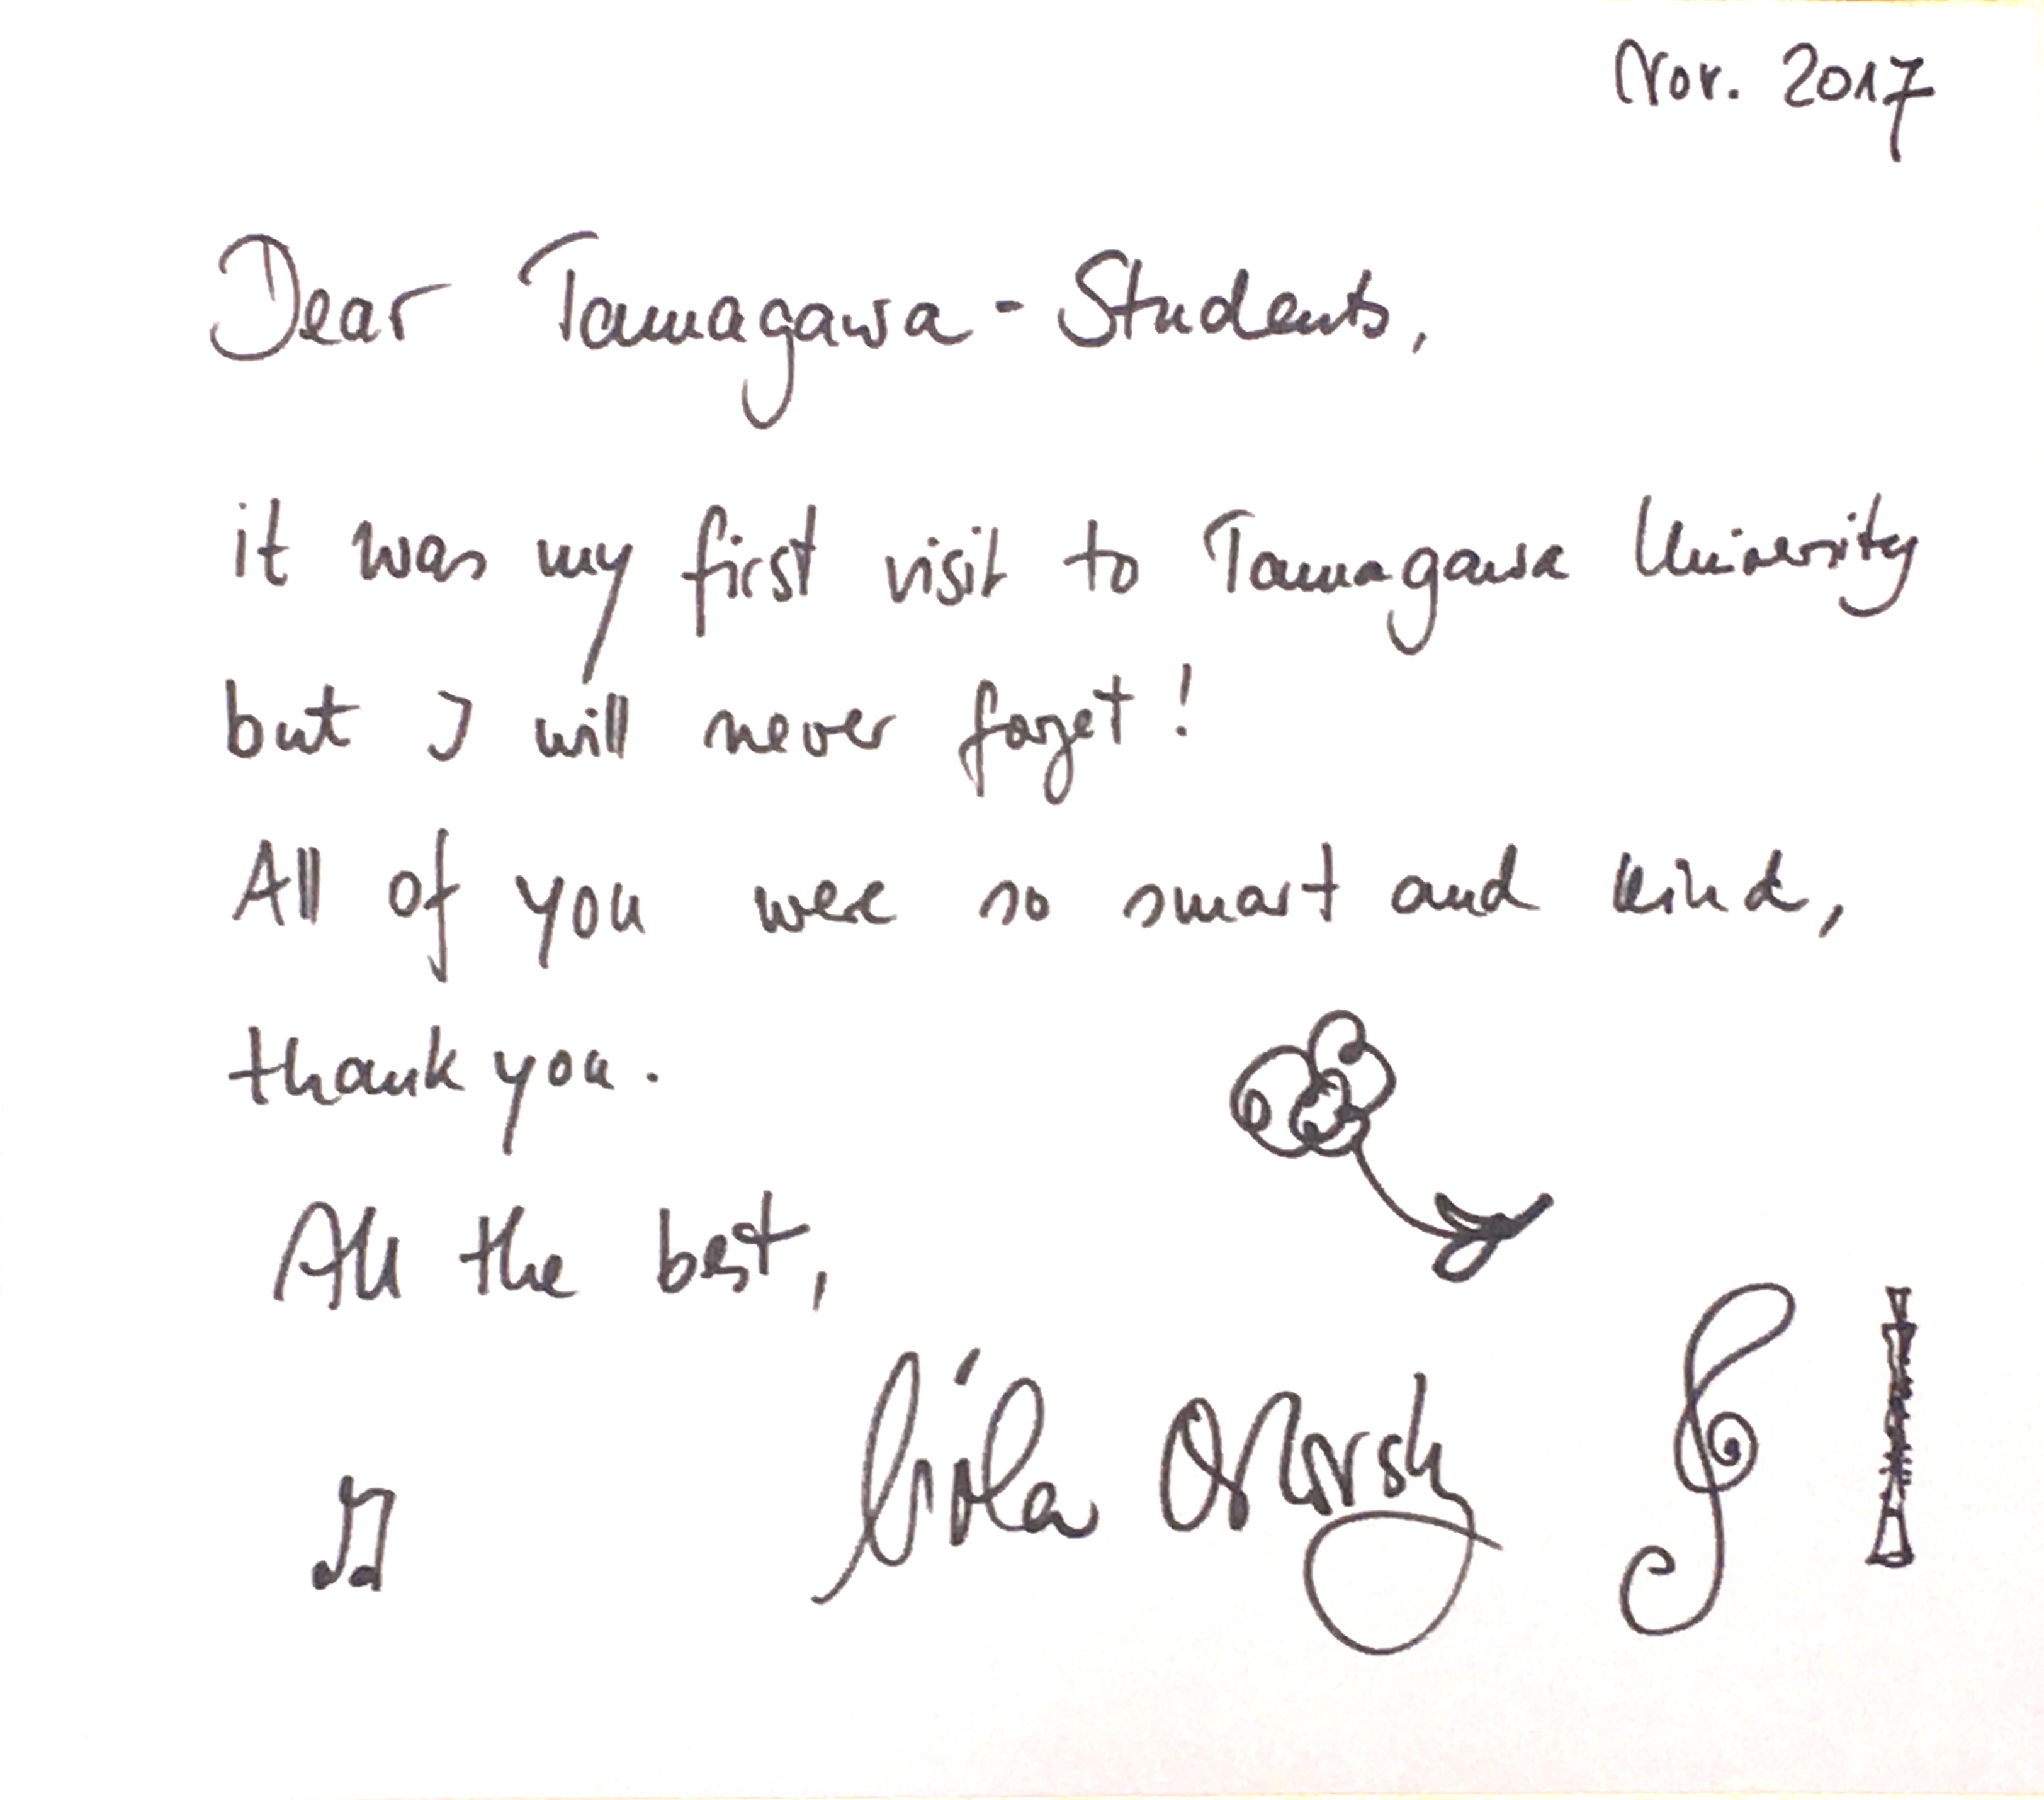 Nov. 2017
Dear Tamagawa - Students,
it was my first visit to Tamagawa University
but I will never forget!
All of you were so smart and kind,
thank you.
All the best,